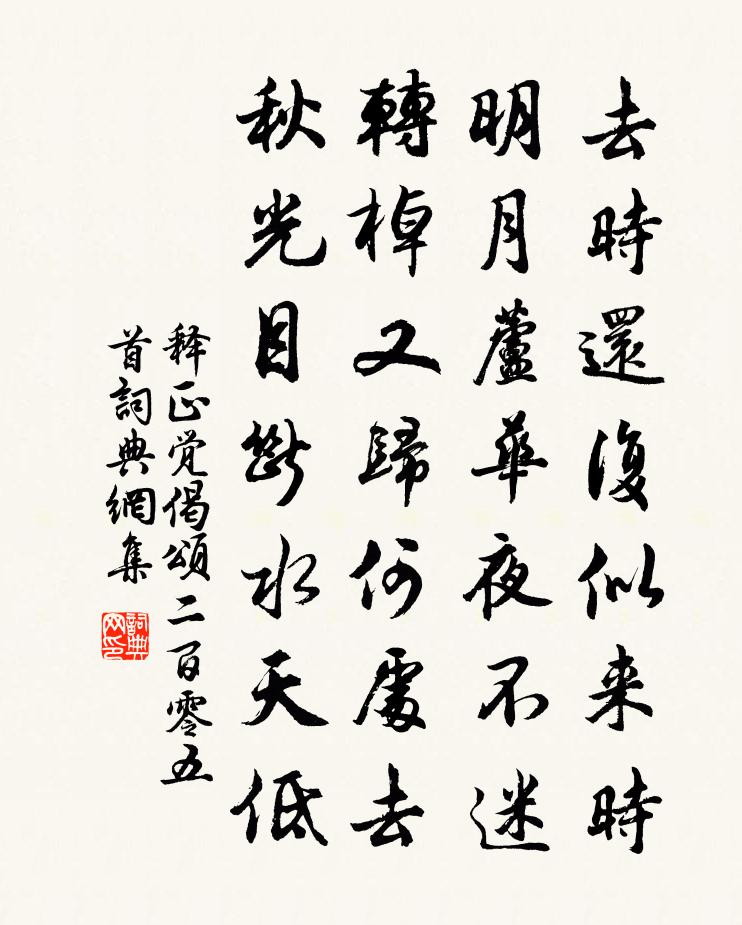 去時還復似来時
明月蘆華夜不迷
轉棹又歸何處去
秋光目斷水天低
释正觉偈頌二百零五
首詞典網集
詞典网印